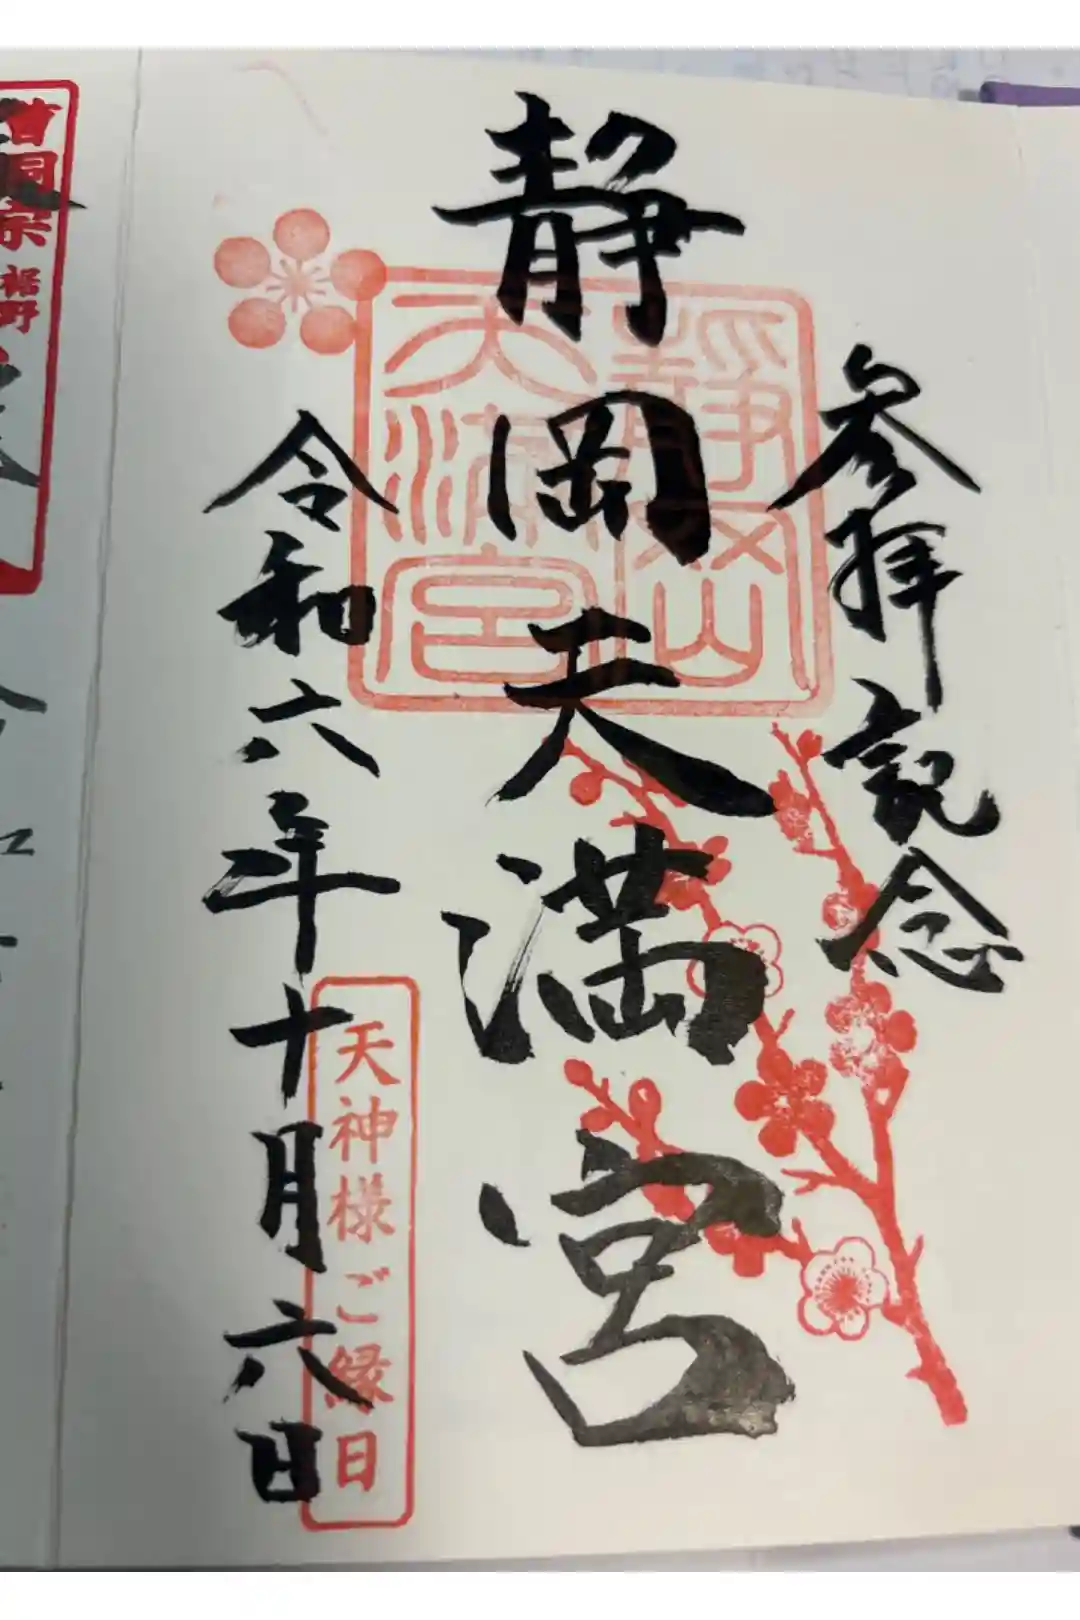 参拝記念
静岡天満宮
静岡
天満宮
令和六年十月六日
天神様ご縁日
曹洞宗 裾野